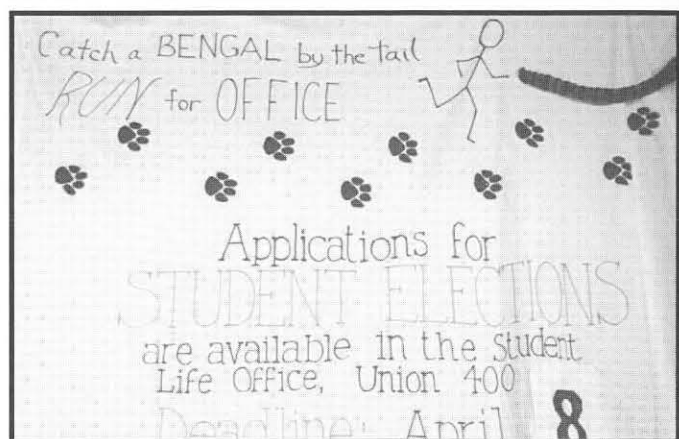 Catch a BENGAL by the tail
RUN for OFFICE
Applications for
STUDENT ELECTIONS
are available in the Student
Life Office, Union 400
Deadline: April 8